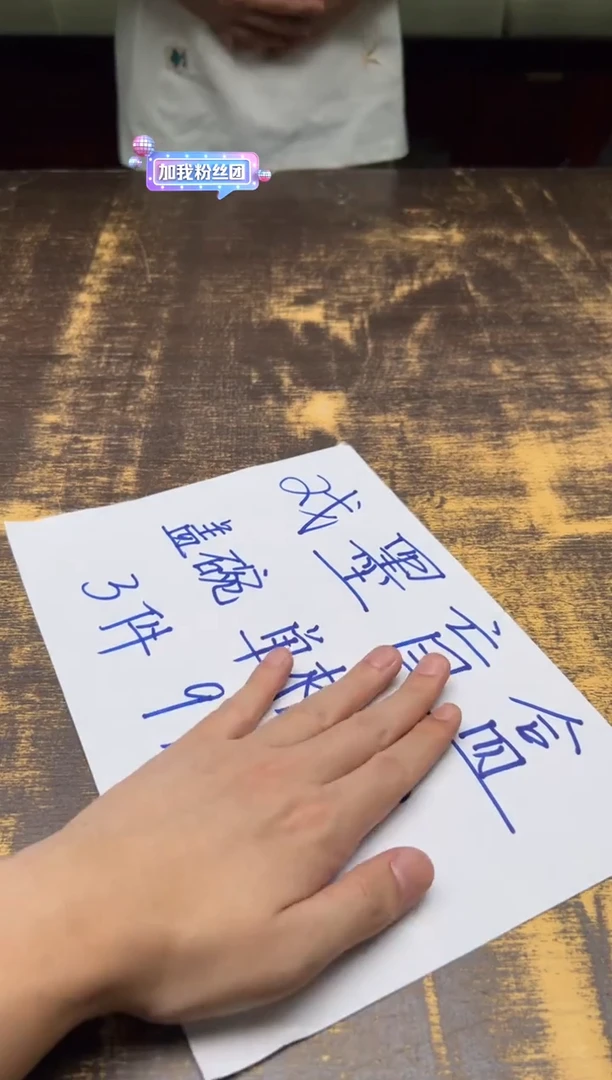 加我粉丝团
戏墨盲盒
盖碗 单
3件 9